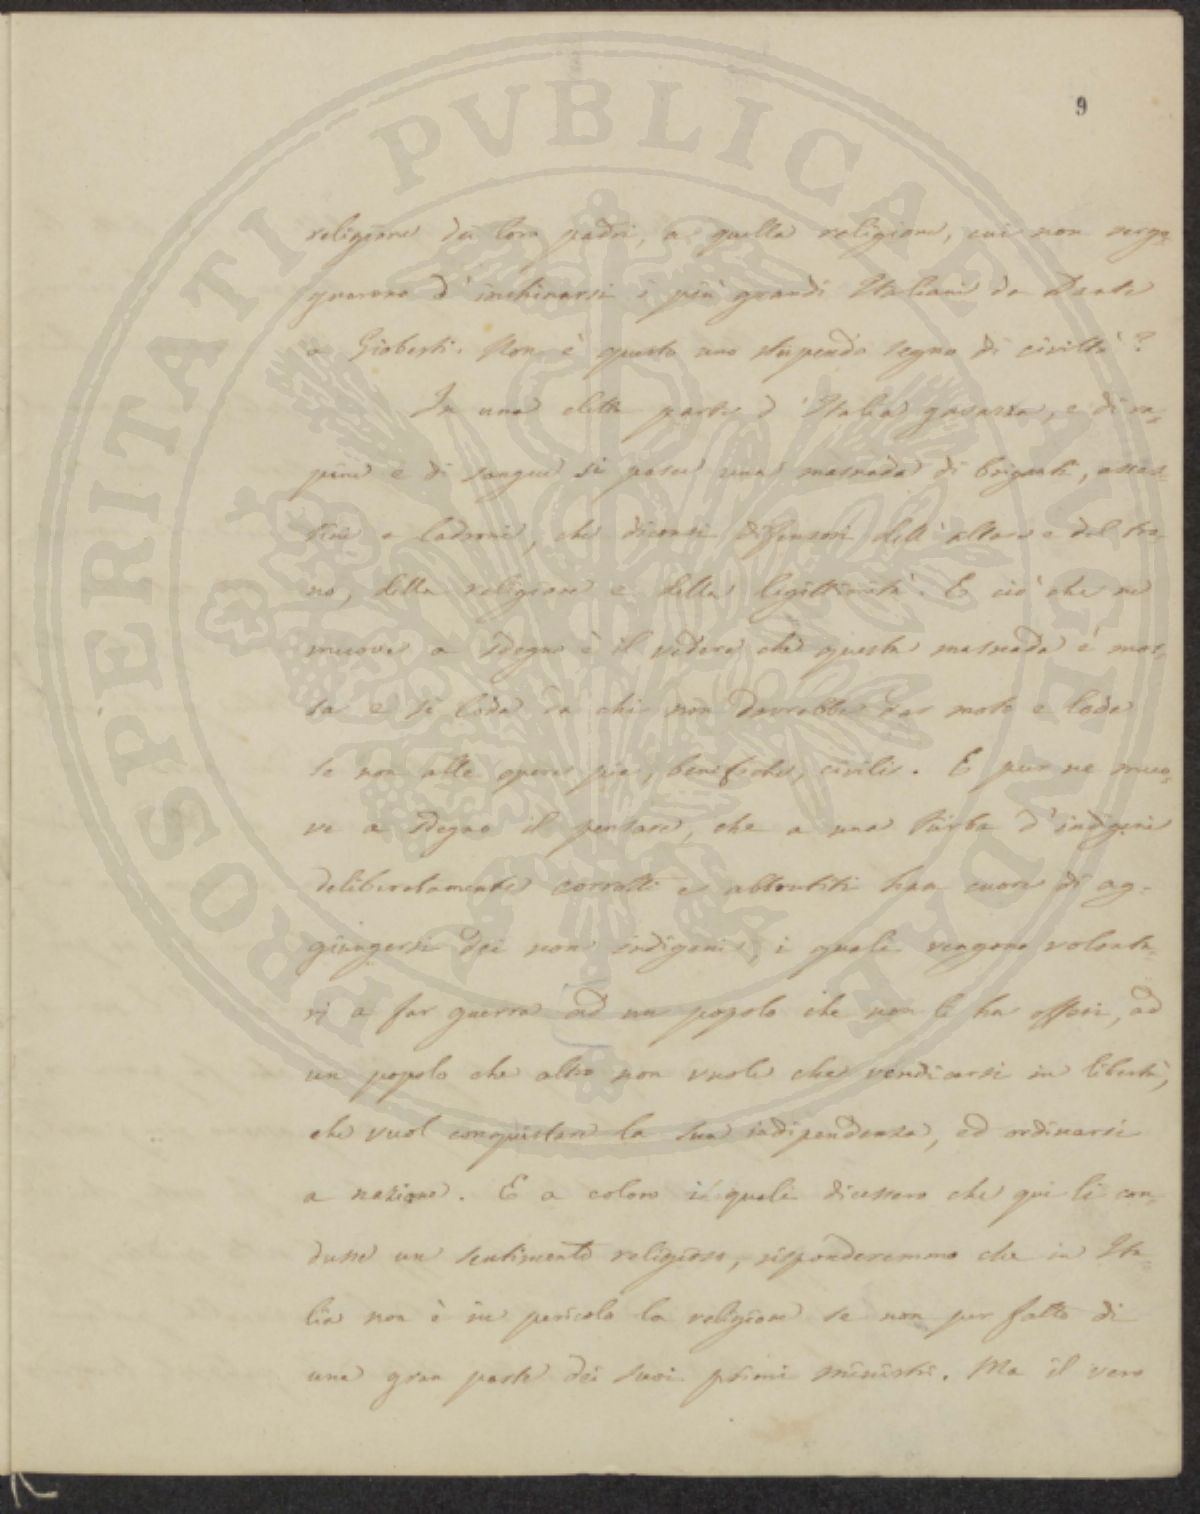 PROSPERITATI PVBLICAE AVGENDAE
9
religione dei loro padri, a quella religione, cui non vergo-
gnarono d'inchinarsi i più grandi Italiani da Dante
a Gioberti. Non è questo uno stupendo segno di civiltà?
In una eletta parte d'Italia gavazza, e di ra-
pine e di sangue si pasce una masnada di briganti, assas-
sini e ladroni, che diconsi difensori dell'altare e del tro-
no, della religione e della legittimità. E ciò che ne
muove a sdegno è il vedere che questa masnada è mos-
sa e si loda da chi non dovrebbe dar moto e lode
se non alle opere pie, benefiche, civili. E pur ne muo-
ve a sdegno il pensare, che a una turba d'indigeni
deliberatamente corrotti e abbrutiti han cuore di ag-
giungersi dei non indigeni, i quali vengono volonta-
rj a far guerra ad un popolo che non li ha offesi, ad
un popolo che altro non vuole che vendicarsi in libertà,
che vuol conquistare la sua indipendenza, ed ordinarsi
a nazione. E a coloro i quali dicessero che qui li con-
dusse un sentimento religioso, risponderemmo che in Ita-
lia non è in pericolo la religione se non per fatto di
una gran parte dei suoi primi ministri. Ma il vero